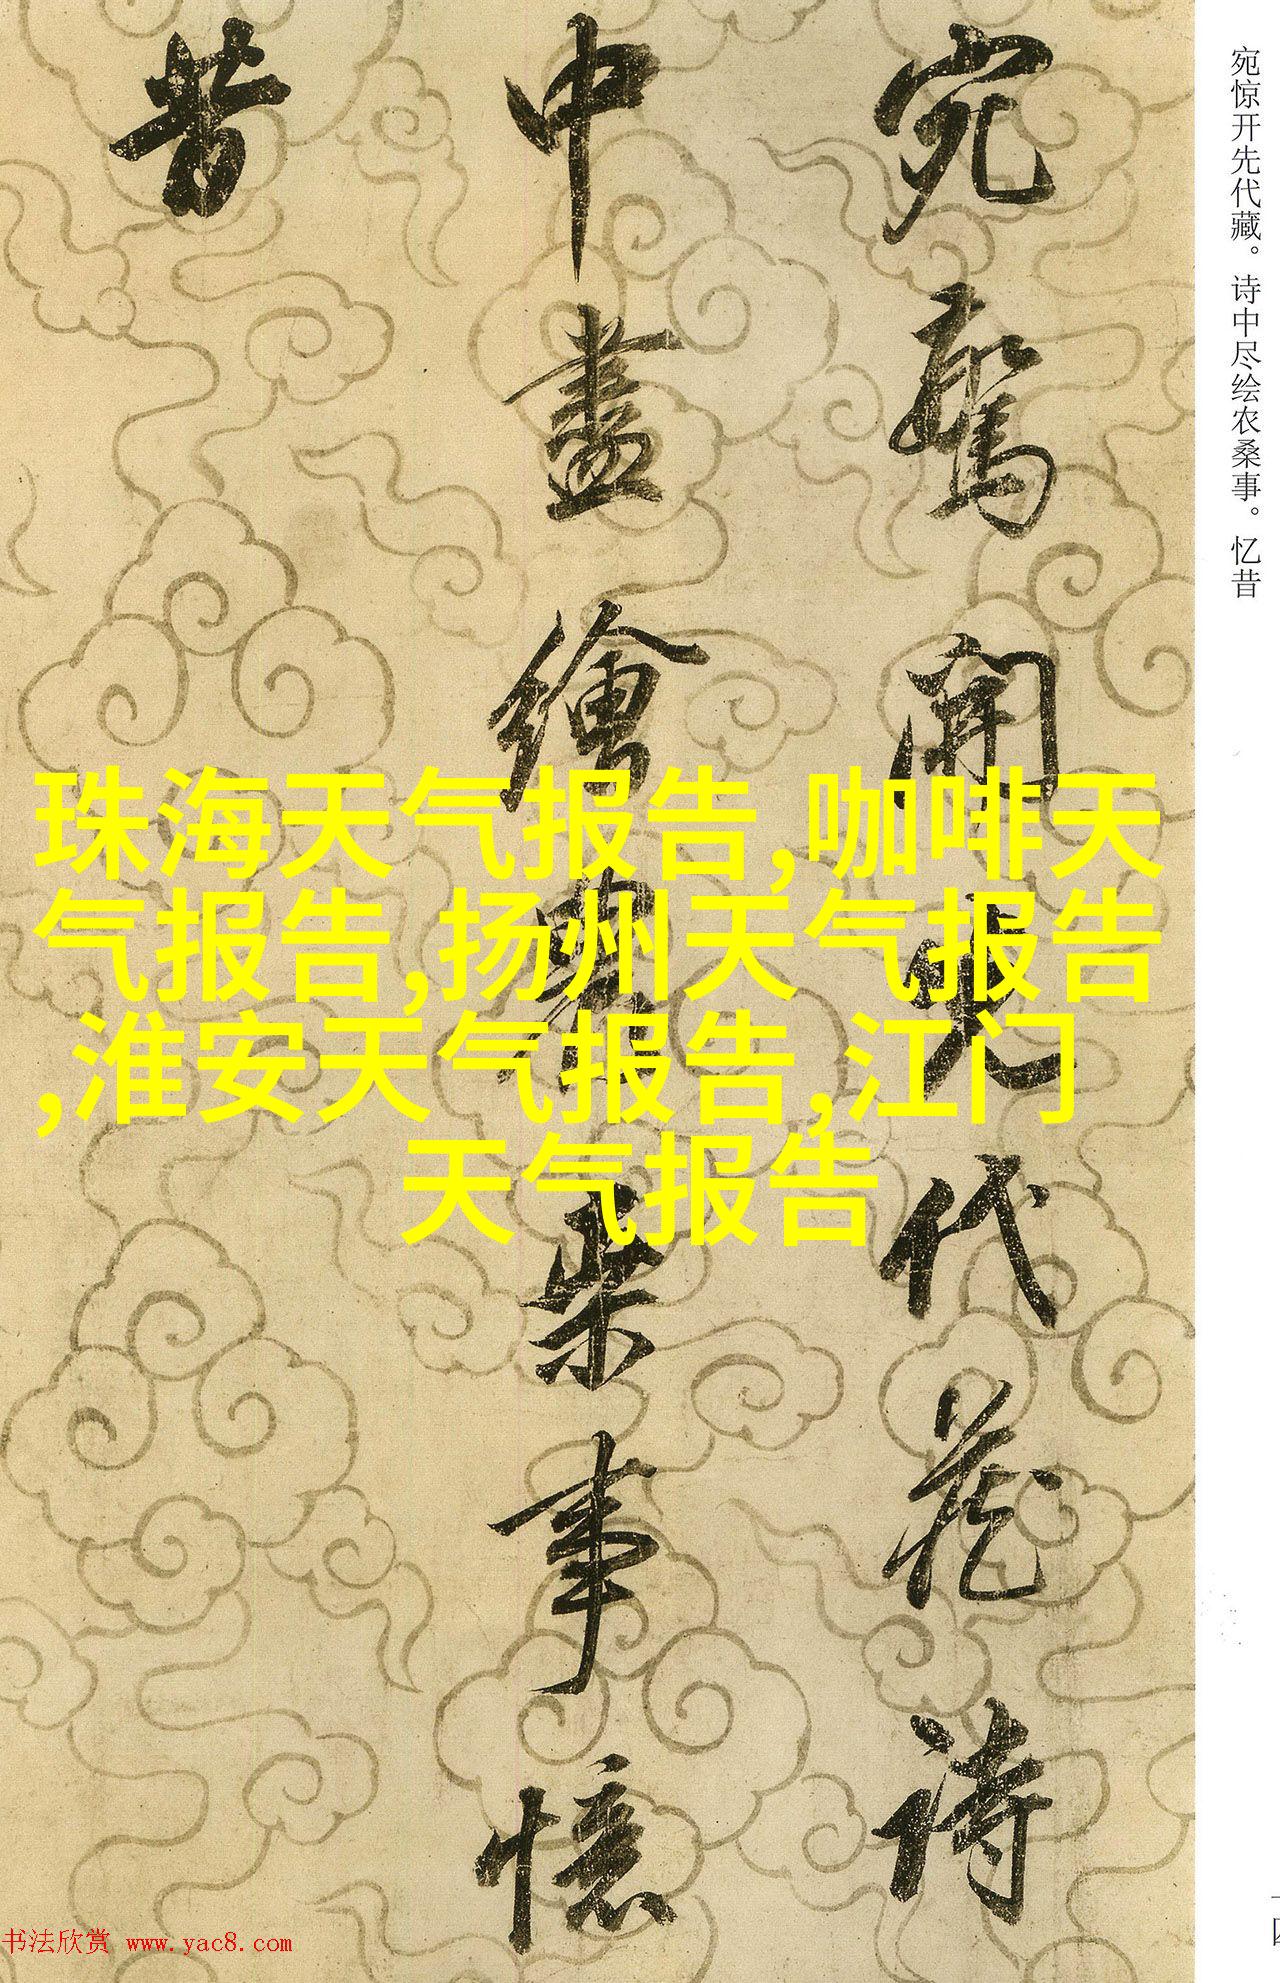 宛惊开先代藏。诗中尽绘农桑事。忆昔
宛驚開先代藏詩
中盡繪農桑事憶
昔
珠海天气报告,咖啡天
气报告,扬州天气报告
,淮安天气报告,江门
天气报告
书法欣赏 www.yac8.com